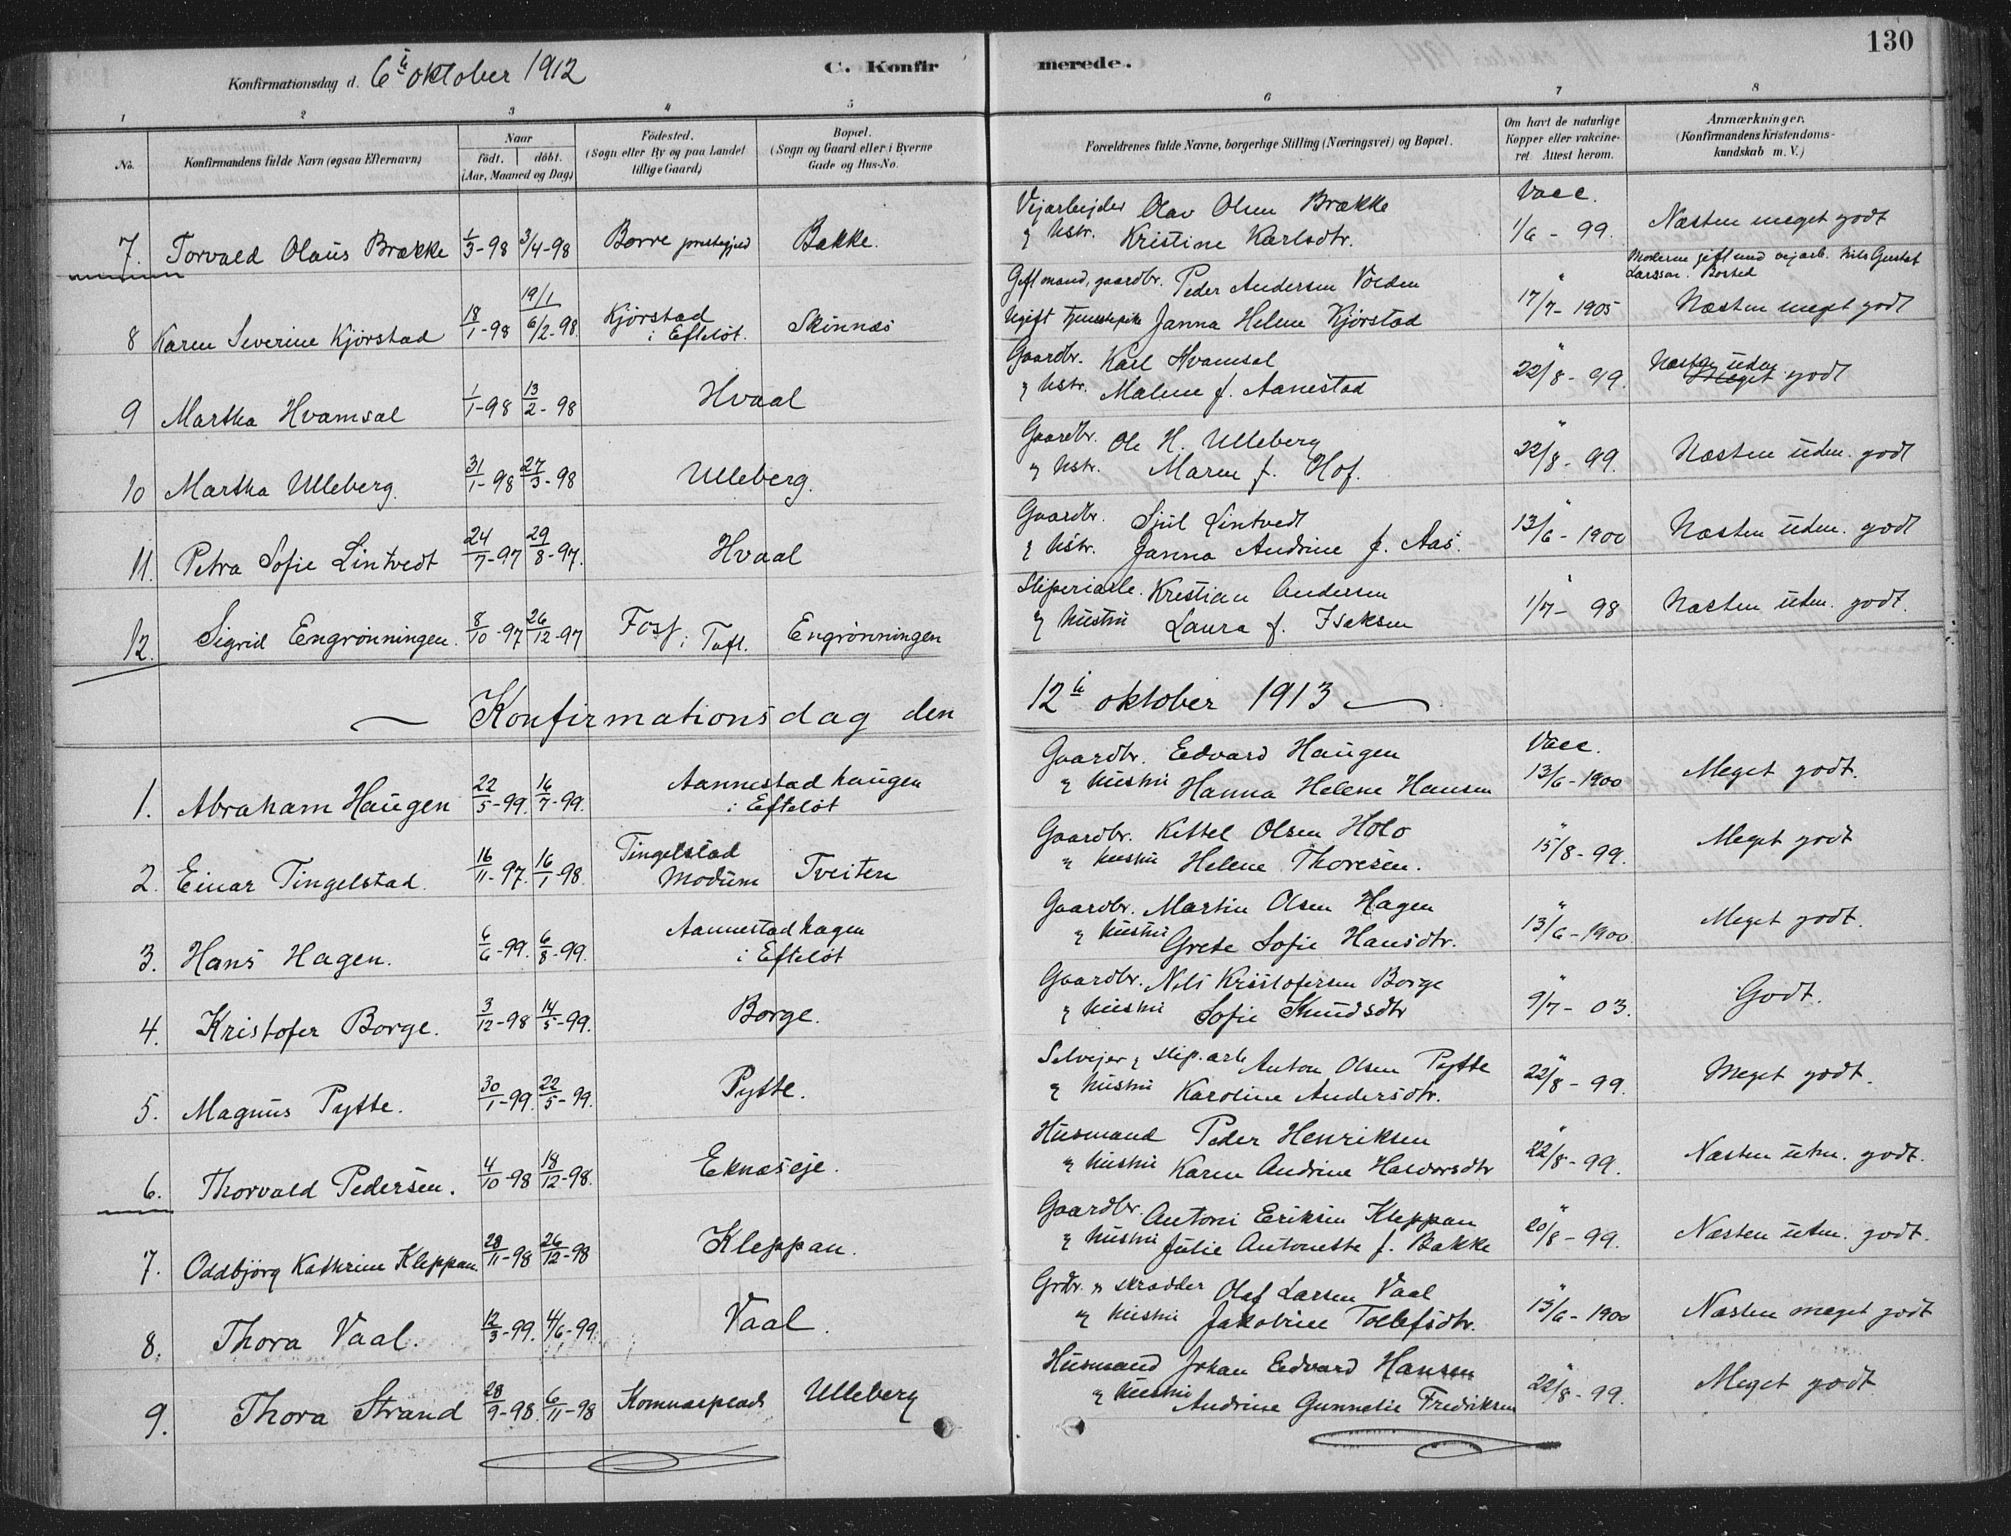 130
Konfirmationsdag d. 6te oktober 1912
C. Konfirmerede.
1 2 3 4 5 6 7 8
No. Konfirmandens fulde Navn (ogsaa Efternavn) Naar født. døbt. (Aar, Maaned og Dag) Fødested. (Sogn eller By og paa Landet tillige Gaard) Bopæl. (Sogn og Gaard eller i Byerne Gade og Hus-No. Forældrenes fulde Navne, borgerlige Stilling (Næringsvei) og Bopæl. Om havt de naturlige Kopper eller vakcineret Attest herom. Anmærkninger. (Konfirmandens Kristendomskundskab m. V.)
7. Torvald Olaus Brække 1/3-98 3/4-98 Borre prestegjeld Bakke. Vejarbejder Olav Olsen Brække
& hstr. Kristine Karlsdtr. Vacc. 1/6 - 99. Næsten meget godt
8 Karen Severine Kjørstad 18/1-98 19/1 6/2-98. Kjørstad i Efteløt. Skinnæs Gift mand, gaardbr. Peder Andersen Volden
Ugift tjenestepike Janna Helene Kjørstad " 17/7-1905 Moderen gift med vejarb. Nils Gustaf Larsson. Bosted
Næsten meget godt
9 Martha Hvamsal 1/1-98 13/2-98 Hvaal Gaardbr. Karl Hvamsal
& hstr. Malene f. Aanestad " 22/8-99. Næsten uden. Meget godt
10 Martha Ulleberg. 31/1-98 27/3-98 Ulleberg. Gaardbr. Ole H. Ulleberg
& hstr. Maren f. Hof. " 22/8-99. Næsten uden. godt
11. Petra Sofie Lintvedt 24/7-97 29/8-97. Hvaal Gaardbr. Sjul Lintvedt
& hstr. Janna Andrine f. Aas. " 13/6-1900 Næsten uden. godt
12. Sigrid Engrønningen. 8/10-97 26/12-97 Foss i Tuft. Engrønningen Sliperiarb. Kristian Andersen
& hustru Laura f. Isaksen " 1/7-98 Næsten uden. godt.
Konfirmationsdag den 12te oktober 1913
1. Abraham Haugen 22/5-99. 16/7-99. Aannestadhaugen i Efteløt Gaardbr. Edvard Haugen
& hustru Hanna Helene Hansen Vacc. 13/6-1900 Meget godt.
2. Einar Tingelstad. 16/11-97. 16/1-98. Tingelstad Modum Tveiten Gaardbr. Kittel Olsen Holo
& hustru Helene Thoresen. " 15/8-99. Meget godt
3. Hans Hagen. 6/6-99. 6/8-99. Aannestadhagen i Efteløt Gaardbr. Martin Olsen Hagen
& hustru Grete Sofie Hansdtr. " 13/6-1900. Meget godt.
4. Kristofer Borge. 3/12-98 14/5-99. Borge. Gaardbr. Nils Kristofersen Borge
& hustru Sofie Knudsdtr " 9/7-03. Godt.
5. Magnus Pytte. 30/1-99. 22/5-99. Pytte. Selvejer & slip.arb Anton Olsen Pytte
& hustru Karoline Andersdtr. " 22/8-99. Meget godt.
6. Thorvald Pedersen. 4/10-98 18/12-98. Eknæseje. Husmand Peder Henriksen
& hustru Karen Andrine Halvorsdtr " 22/8-99. Næsten utm. godt.
7. Oddbjörg Kathrine Kleppan. 28/11-98 26/12-98 Kleppan. Gaardbr. Antoni Eriksen Kleppan
& hustru Julie Antonette f. Bakke " 20/8-99. Næsten utm. godt.
8. Thora Vaal. 12/3-99. 4/6-99. Vaal. Grdbr. & skrædder Olaf Larsen Vaal
& hustru Jakobine Tollefsdtr. " 13/6-1900 Næsten meget godt
9. Thora Strand 28/9-98. 6/11-98 Komnæsplads Ulleberg Husmand Johan Edvard Hansen
& hustru Andrine Gunnelie Fredriksen " 22/8-99. Meget godt